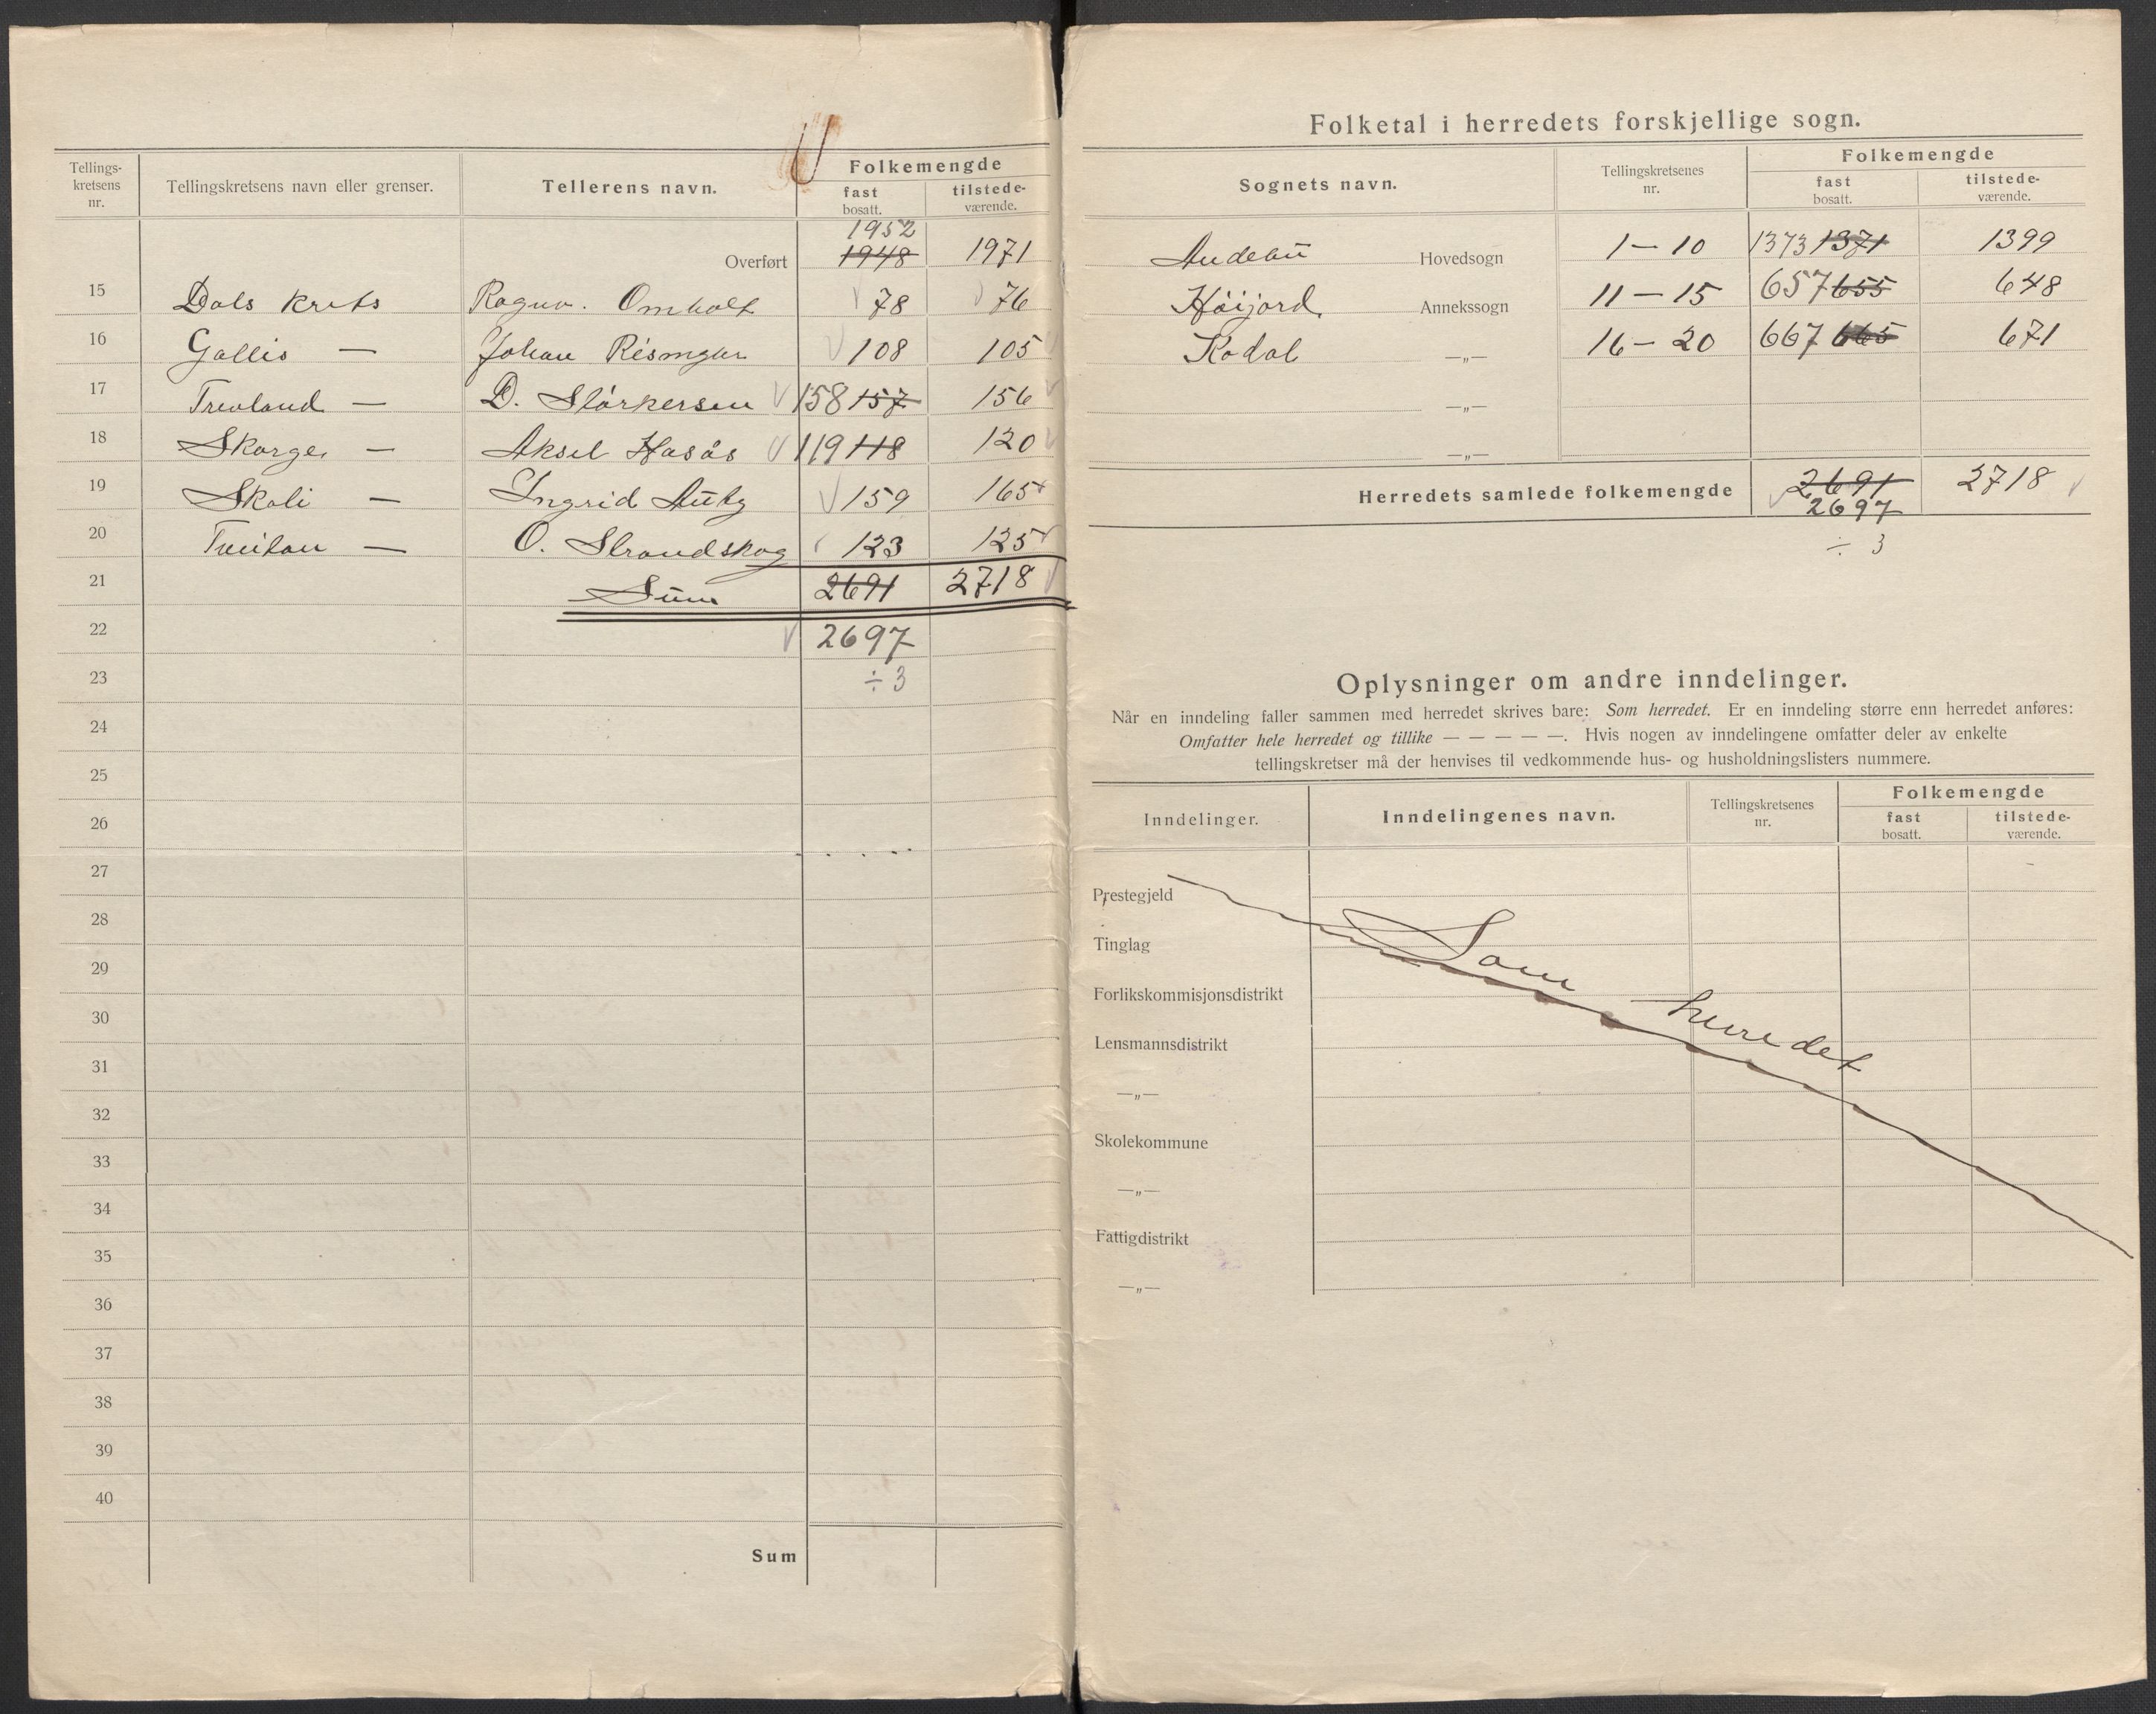 Tellings-
kretsens
nr.
Tellingskretsens navn eller grenser.
Tellerens navn.
Folkemengde
fast
bosatt.
tilstede-
værende.
1952
Overført 1948 1971
15 Dals krets Ragnv. Omholt 78 76
16 Gallis — Johan 108 105
17 Trevland — D. Størkersen 158 157 156
18 Skorge — Aksel Hasås 119 118 120
19 Skoli — Ingrid 159 165
20 Tveitan — O. Strandskog 123 125
21 Sum 2691 2718
22 2697
23 ÷ 3
24
25
26
27
28
29
30
31
32
33
34
35
36
37
38
39
40
Sum
Folketal i herredets forskjellige sogn.
Sognets navn.
Tellingskretsenes
nr.
Folkemengde
fast
bosatt.
tilstede-
værende.
Andebu Hovedsogn 1 — 10 1373 1371 1399
Høijord Annekssogn 11 — 15 657 655 648
Kodal —„— 16 — 20 667 665 671
—„—
—„—
Herredets samlede folkemengde 2691 2718
2697
÷ 3
Oplysninger om andre inndelinger.
Når en inndeling faller sammen med herredet skrives bare: Som herredet. Er en inndeling større enn herredet anføres:
Omfatter hele herredet og tillike — — — — —. Hvis nogen av inndelingene omfatter deler av enkelte
tellingskretser må der henvises til vedkommende hus- og husholdningslisters nummere.
Inndelinger.
Inndelingenes navn.
Tellingskretsenes
nr.
Folkemengde
fast
bosatt.
tilstede-
værende.
Prestegjeld
Tinglag
Som herredet
Forlikskommisjonsdistrikt
Lensmannsdistrikt
—„—
Skolekommune
—„—
Fattigdistrikt
—„—